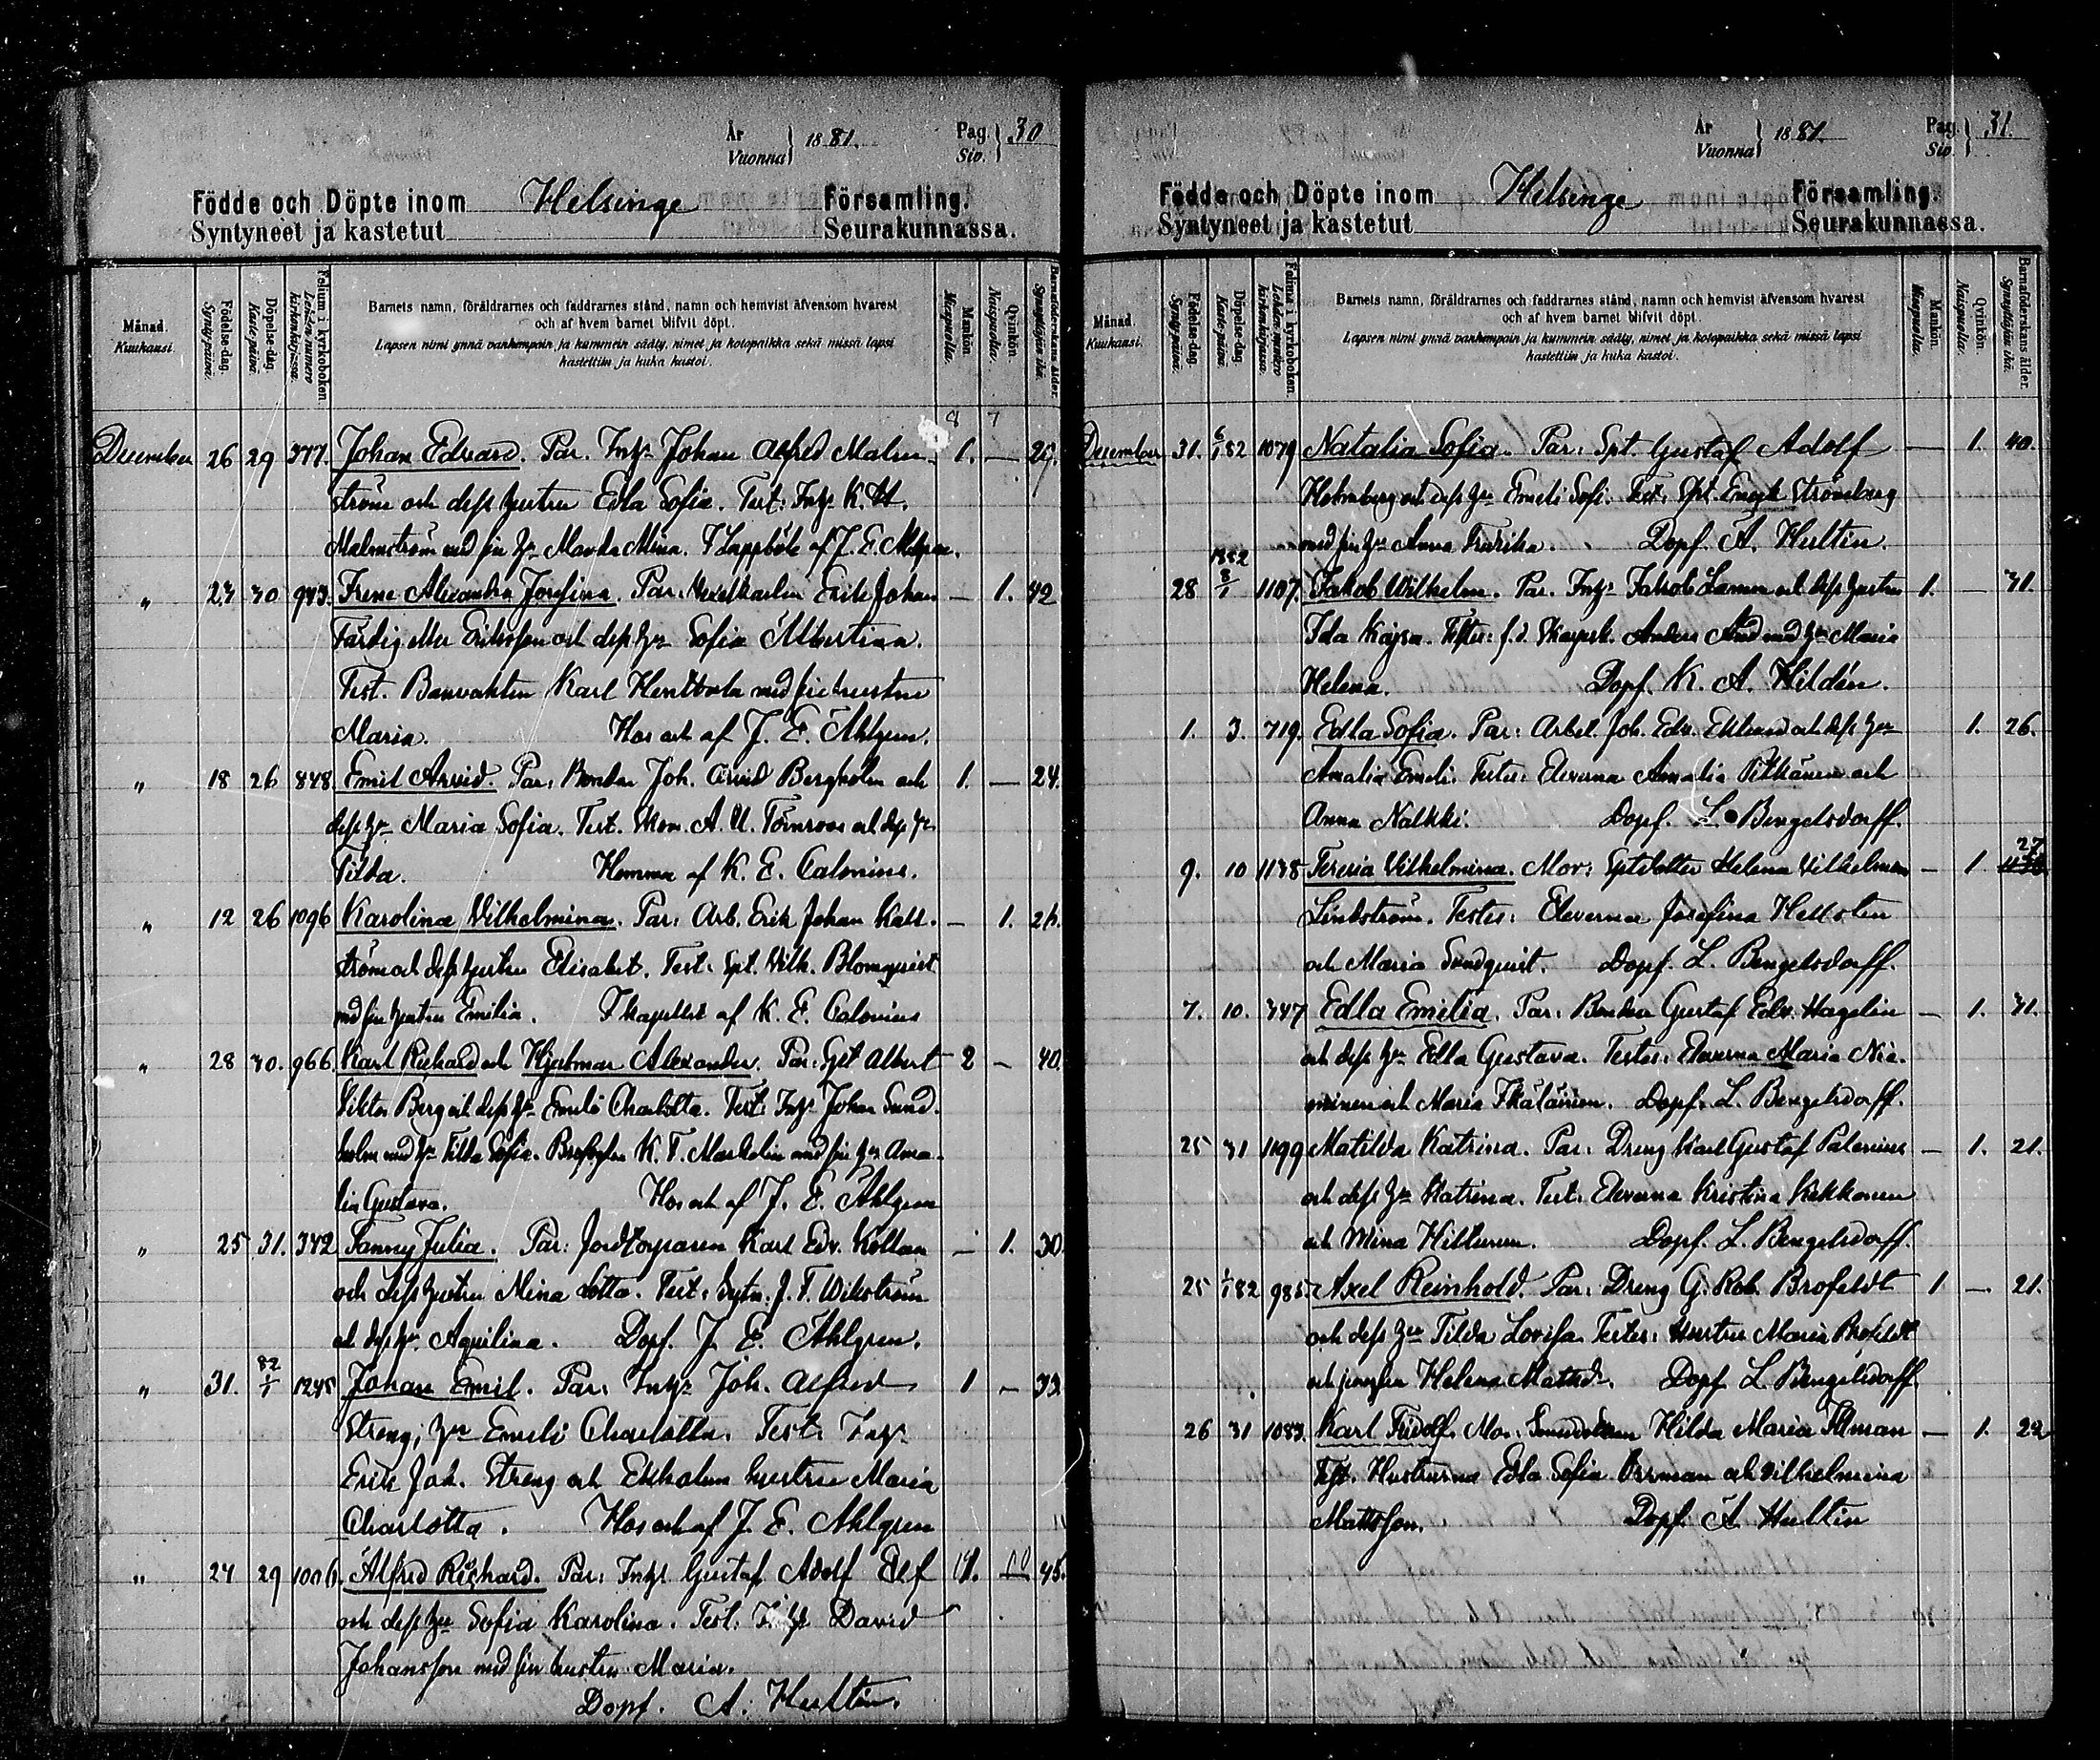 År
Vuonna } 1881. Pag. Siv. } 30
Födde och Döpte inom Helsinge Församling.
Syntyneet ja kastetut Seurakunnassa.
Månad. Kuukausi. Födelse-dag. Syntypäivä. Döpelse-dag. Kastepäivä. Folium i kyrkoboken. Lehden numero kirkonkirjassa. Barnets namn, föräldrarnes och faddrarnes stånd, namn och hemvist äfvensom hvarest Mankön. Miespuolia. Qvinkön. Naispuolia. Barnaföderskans ålder. Synnyttäjän ikä.
och af hvem barnet blifvit döpt.
Lapsen nimi ynnä vanhempain ja kummein sääty, nimet ja kotopaikka sekä missä lapsi
kastettiin ja kuka kastoi.
8 7
December 26 29 377. Johan Edvard. Par. Inhs Johan Alfred Malm- 1. — 29.
ström och dess hustru Edla Sofia. Test: Inhs K. H.
Malmström med sin hu Manda Mina. I Lappböle af J. E. Ahlgren.
" 27 30 943. Irene Alexandra Josefina. Par. Vexelkarlen Erik Johan — 1. 42
Färdig eller Eriksson och dess hu Sofia Albertina.
Test. Banvakten Karl Henttola med sin hustru
Maria. Hos och af J. E. Ahlgren.
" 18 26 848 Emil Arvid. Par. Bonden Joh. Arvid Bergholm och 1. — 24.
dess hu Maria Sofia. Test. Skom. A. U. Törnroos och dess hu
Tilda. Hemma af K. E. Calonius.
" 12 26 1096 Karolina Vilhelmina. Par: Arb. Erik Johan Kall- — 1. 26.
ström och dess hustru Elisabet. Test: Spt. Vilh. Blomqvist
med sin hustru Emilia. I kapellet af K. E. Calonius
" 28 30. 966. Karl Richard och Hjalmar Alexander. Par: Spt Albert 2 — 40.
Viktor Berg och dess hu Emili Charlotta. Test: Inhs Johan Sund-
holm med hu Tilda Sofia. K. F. Markelin med sin hu Ama-
lia Gustava. Hos och af J. E. Ahlgren
" 25 31. 342 Fanny Julia. Par: Jordtorparen Karl Edv. Koltan — 1. 30
och dess hustru Mina Lotta. Test: J. F. Wikström
och dess hu Aqvilina. Döpf. J. E. Ahlgren.
" 31. 82 1/1 1245 Johan Emil. Par: Inhs Joh. Alfred 1 — 33.
Streng; hu Emili Charlotta. Test: Inhs
Erik Joh. Streng och Ekholms hustru Maria
Charlotta. Hos och af J. E. Ahlgren
" 24 29 1006. Alfred Richard. Par: Inhs Gustaf Adolf Elf 1. — 45.
och dess hu Sofia Karolina. Test: Inhs David
Johansson med sin hustru Maria.
Döpf. A. Hultin.
År
Vuonna } 1881. Pag. Siv. } 31.
Födde och Döpte inom Helsinge Församling.
Syntyneet ja kastetut Seurakunnassa.
Månad. Kuukausi. Födelse-dag. Syntypäivä. Döpelse-dag. Kastepäivä. Folium i kyrkoboken. Lehden numero kirkonkirjassa. Barnets namn, föräldrarnes och faddrarnes stånd, namn och hemvist äfvensom hvarest Mankön. Miespuolia. Qvinkön. Naispuolia. Barnaföderskans ålder. Synnyttäjän ikä.
och af hvem barnet blifvit döpt.
Lapsen nimi ynnä vanhempain ja kummein sääty, nimet ja kotopaikka sekä missä lapsi
kastettiin ja kuka kastoi.
December 31. 6/1 82 1079 Natalia Sofia. Par: Spt. Gustaf Adolf — 1. 40.
Holmberg och dess hu Emeli Sofi. Test: Spt. Strömberg
med sin hu Anna Fredrika. Döpf. A. Hultin.
28 1882 8/1 1107. Jakob Wilhelm. Par. Inhs Jakob Lamm och dess hustru 1. — 31.
Ida Kajsa. Test: f. d. Skarpsk. Anders med hu Maria
Helena. Döpf. K. A. Hildén.
1. 3. 719. Edla Sofia. Par: Arbet. Joh. Edv. Eklund och dess hu 1. 26.
Amalia Emeli. Testes: Eleverna Amalia Pitkänen och
Anna Nalkki. Döpf. L. Bengelsdorff.
9. 10 1138 Teresia Vilhelmina. Mor: Sptdotter Helena Vilhelmina — 1 27
Lindström. Testes: Eleverna Josefina Hellsten
och Maria Sundqvist. Döpf. L. Bengelsdorff.
7. 10. 347 Edla Emilia. Par: Bonden Gustaf Edv. Hagelin — 1. 31.
och dess hu Edla Gustava. Testes: Eleverna Maria Nie-
minen och Maria Ikäläinen. Döpf. L. Bengelsdorff.
25 31 1199 Matilda Katrina. Par: Dreng Karl Gustaf Palenius — 1. 21.
och dess hu Katrina. Test. Eleverna Kristina Kekkonen
och Mina Hilturen. Döpf. L. Bengelsdorff.
25 1/1 82 985. Axel Reinhold. Par: Dreng G. Rob. Brofeldt 1 — 21.
och dess hu Tilda Lovisa. Testes: Hustru Maria Brofeldt
och pigan Helena Matsd. Döpf L. Bengelsdorff.
26 31 1083. Karl Fridolf. Mor: Hilda Maria Illman — 1. 22
Test. Hustrurna Edla Sofia Öhrman och Vilhelmina
Mattsson. Döpf. A. Hultin